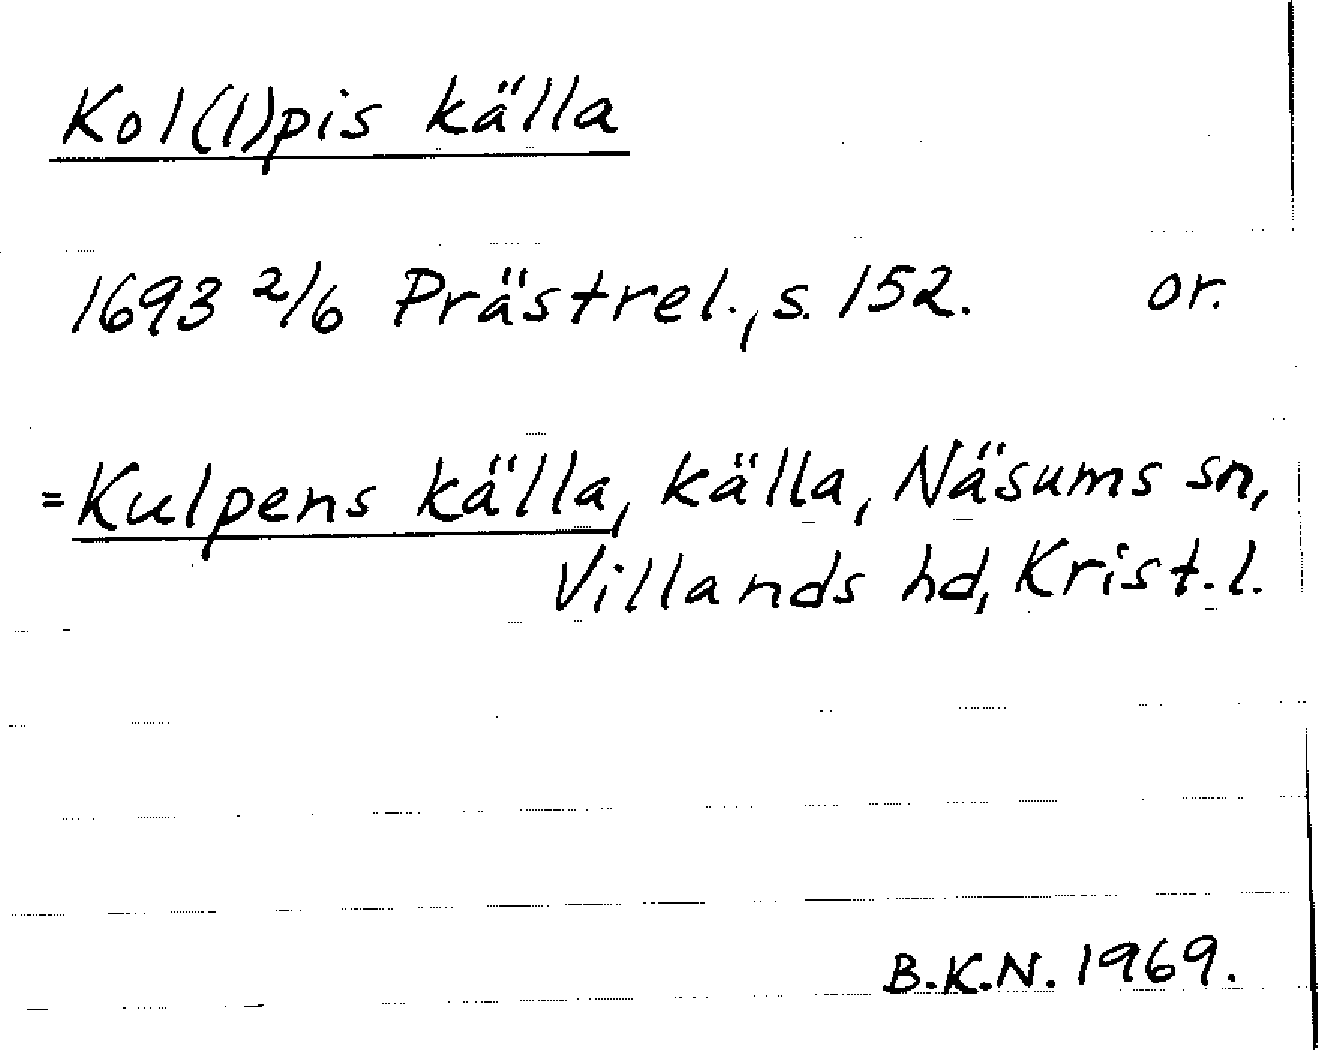 Kol(l)pis källa
1693 2/6 Prästrel., s. 152. or.
=Kulpens källa, källa, Näsums sn,
Villands hd, Krist.l.
B.K.N. 1969.